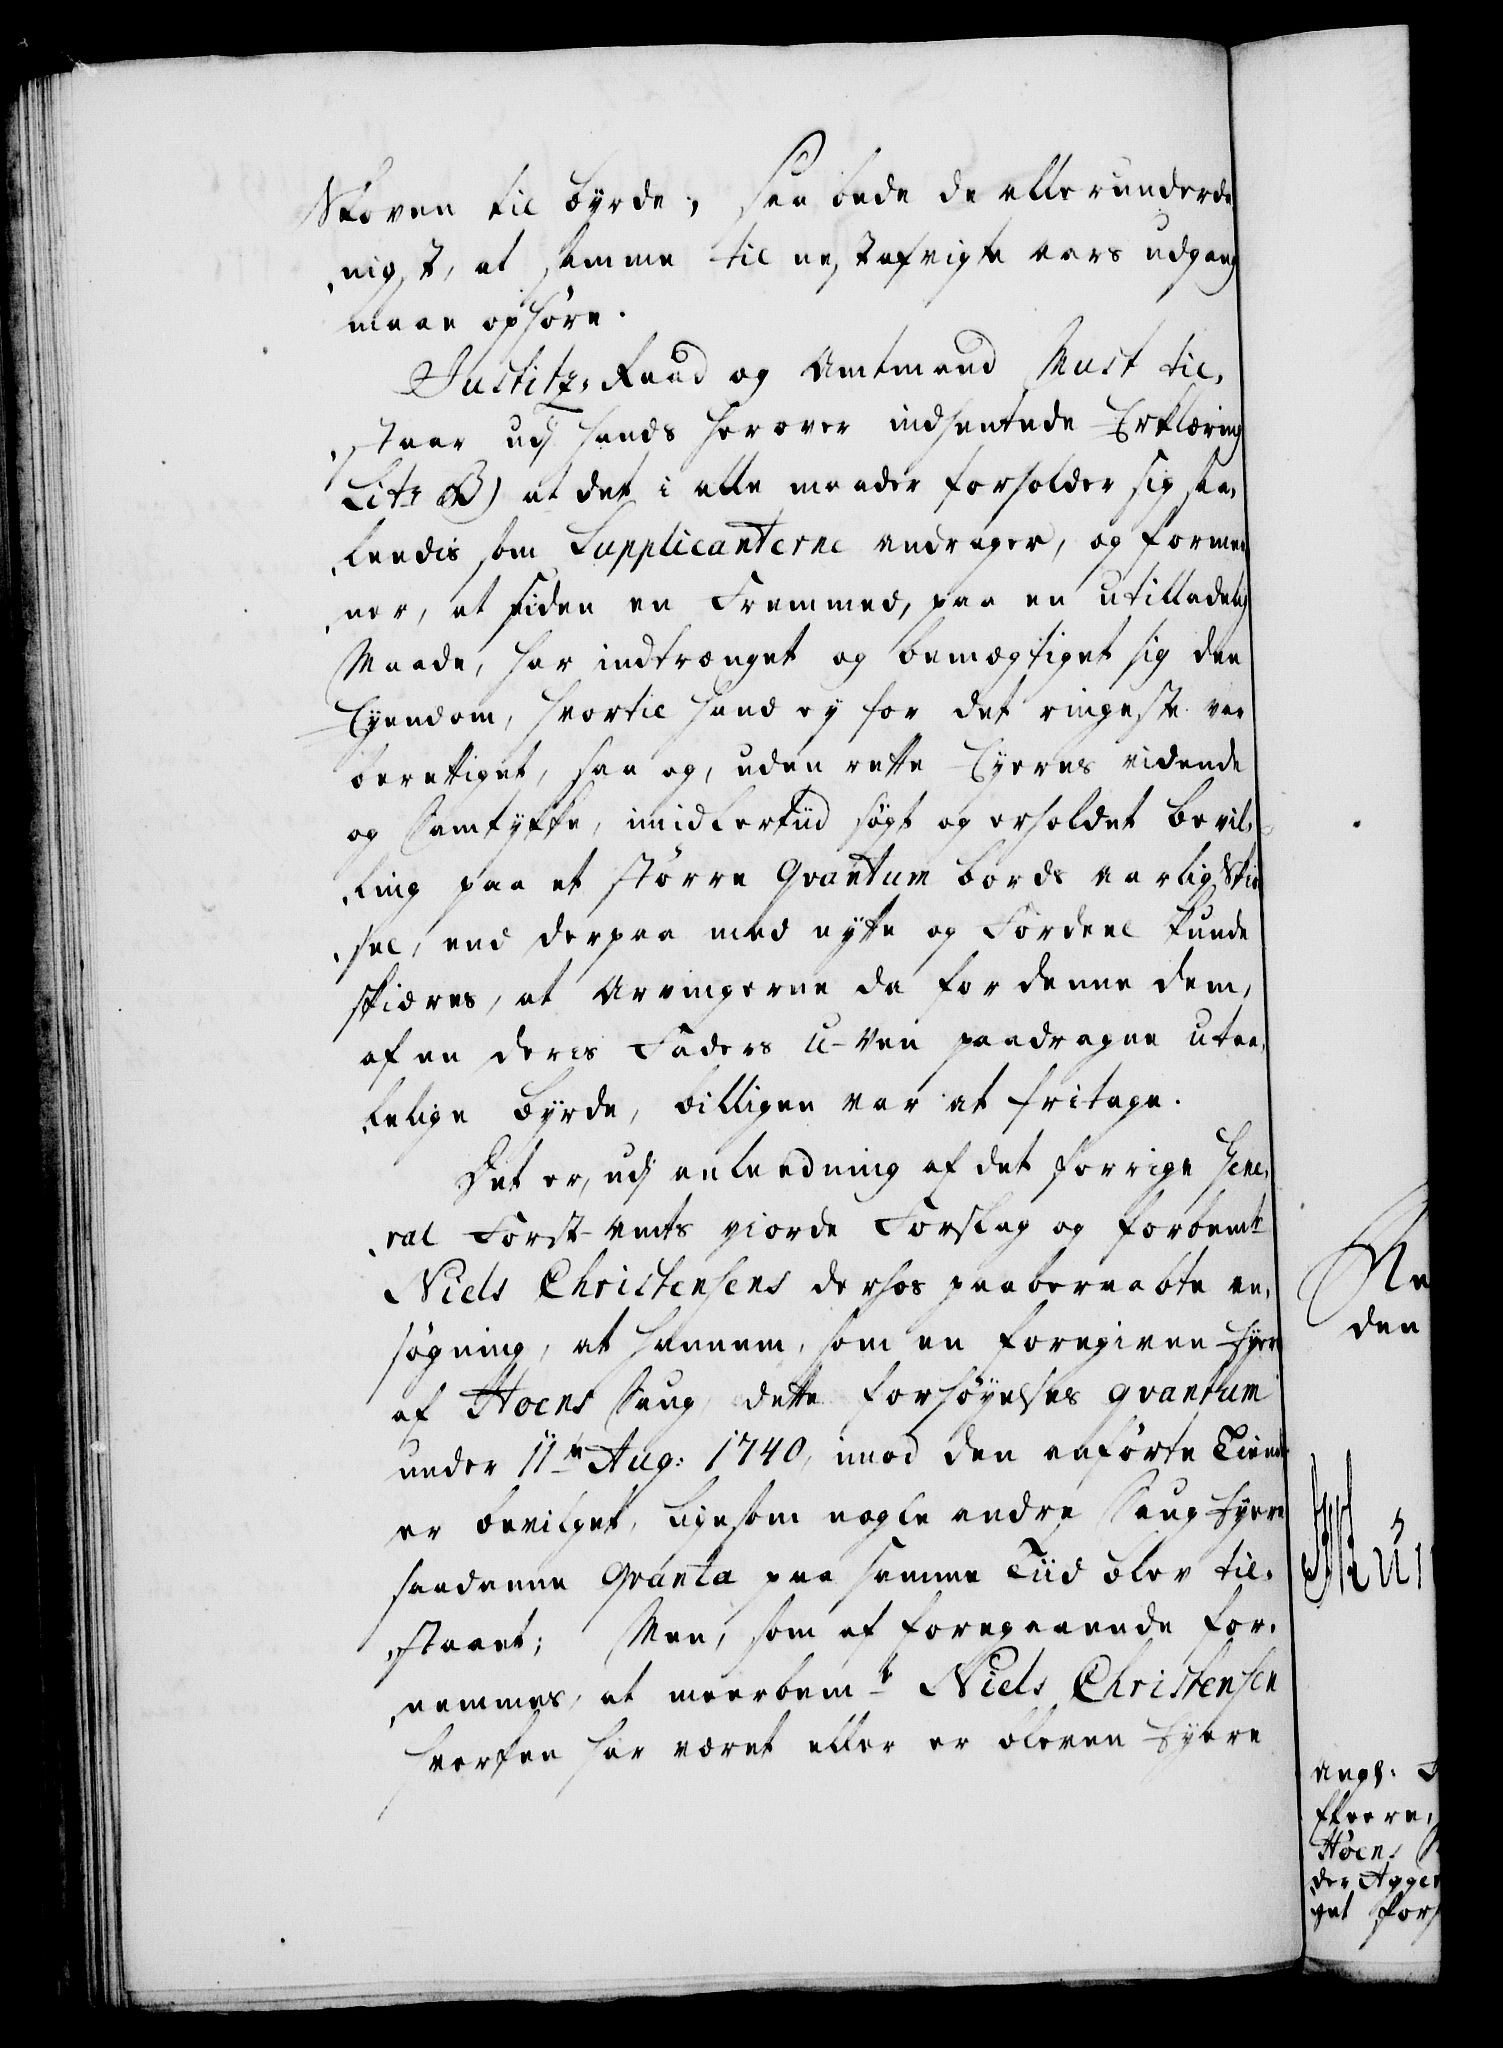 Skoven til byrde, saa bede de allerunderda
nigst, at samme til nestafvigte aars udgang
maae ophöre.
Justitz-Raad og Amtmand Must til,
staar udj hands herover indhentede Erklæring
Litr B) at det i alle maader forholder sig saa,
ledis som Supplicanterne andrager, og formee
ner, at siden en Fremmed, paa en utilladelig
Maade, har indtrænget og bemægtiget sig den
Eyendom, hvortil hand ey for det ringeste var
berettiget, saa og, uden rette Eyeres vidende
og Samtykke, imidlertiid sögt og erholdet bevil,
ling paa et större Qvantum bords aarlig Skiør
sel, end derpaa med nytte og Fordeel kunde
skiæres, at Arvingerne da for denne dem,
af en deres Faders U-Ven paadragne utaa,
lelige byrde, billigen var at fritage.
Det er, udj anleedning af det forrige Gene,
ral Forst-Amts giorde Forslag og forbemte
Niels Christensens derhos paaberaabte an,
sögning, at hannem, som en foregiven Eyer
af Hoens Saug, dette forhöyelses qvantum
under 11te Aug: 1740, imod den anförte Tiende
er bevilget, ligesom nogle andre Saug-Eyere
saadanne Qvanta paa samme Tiid blev til,
staaet; Men, som af foregaaende for,
nemmes, at meerbemte Niels Christensen
hverken har været eller er bleven Eyere
den
Höens